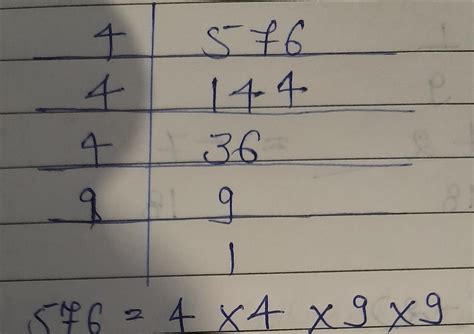 4 576
4 144
4 36
9 9
1
576 = 4 × 4 × 9 × 9